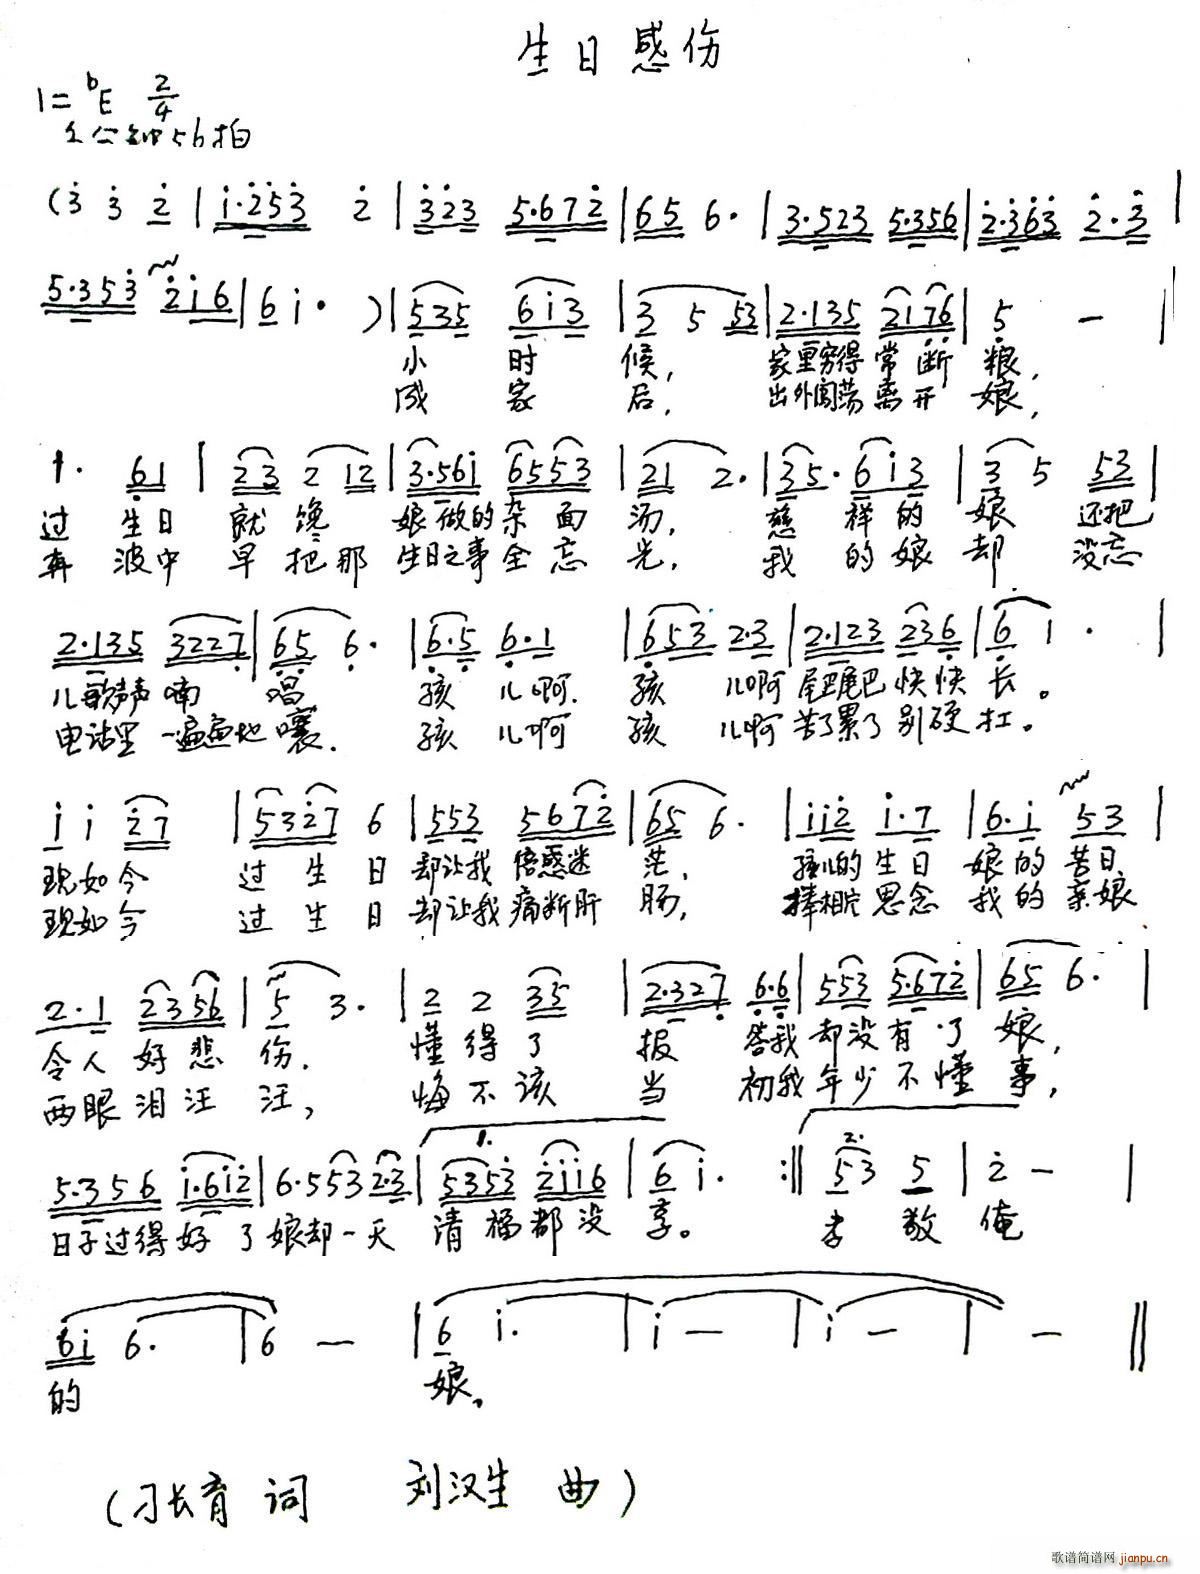 生日感伤
1=bE 2/4
每分钟56拍
(3̇ 3̇ 2̇ | i·2̇53̇ 2̇ | 3̇2̇3̇ 5·672̇ | 65 6· | 3·523 5·356 | 2̇·3̇63̇ 2̇·3̇ |
5·353̇ 2̇i6 | 6i· ) | 535 6i3 | 3 5 53 | 2·135 2176 | 5 — |
小 时 候, 家里穷得常断粮,
成 家 后, 出外闯荡离开娘,
1· 61 | 23 2 12 | 3·56i 6553 | 21 2· | 35· 6i3 | 3 5 53 |
过 生日 就 馋 娘做的杂面 汤, 慈 祥的 娘 还把
奔 波中 早 把那 生日之事全忘 光, 我 的娘 却 没忘
2·135 3227 | 65 6· | 6·5 6·1 | 653 2·3 | 2·123 236 | 6 i · |
儿歌声喃 唱 孩 儿啊. 孩 儿啊 尾巴尾巴快快 长。
电话里一遍遍地 嚷. 孩 儿啊 孩 儿啊 苦了累了别硬 扛。
i i 2̇7 | 532̇7 6 | 553 5672̇ | 65 6· | ii2̇ i·7 | 6·i 53 |
现如今 过 生 日 却让我 倍感迷 茫, 孩儿的生日 娘的苦日
现如今 过 生 日 却让我 痛断肝 肠, 捧相片思念 我的亲娘
2·1 2356 | 5 3· | 2 2 35 | 2·327 6·6 | 553 5·672̇ | 65 6· |
令人 好悲 伤. 懂得了 报 答我 却没有了 娘,
两眼泪汪 汪, 悔不该 当 初我 年少不懂 事,
5·356 i·6i2̇ | 6·553 2·3 | 1. 5353̇ 2̇ii6 | 6 i· :‖ 2. 53 5 | 2̇ — |
日子过得好了娘却一天 清福都没 享。 孝敬 俺
6i 6· | 6 — | 6 i· | i — | i — | — ‖
的 娘。
(刁长育 词 刘汉生 曲)
歌谱简谱网 jianpu.cn